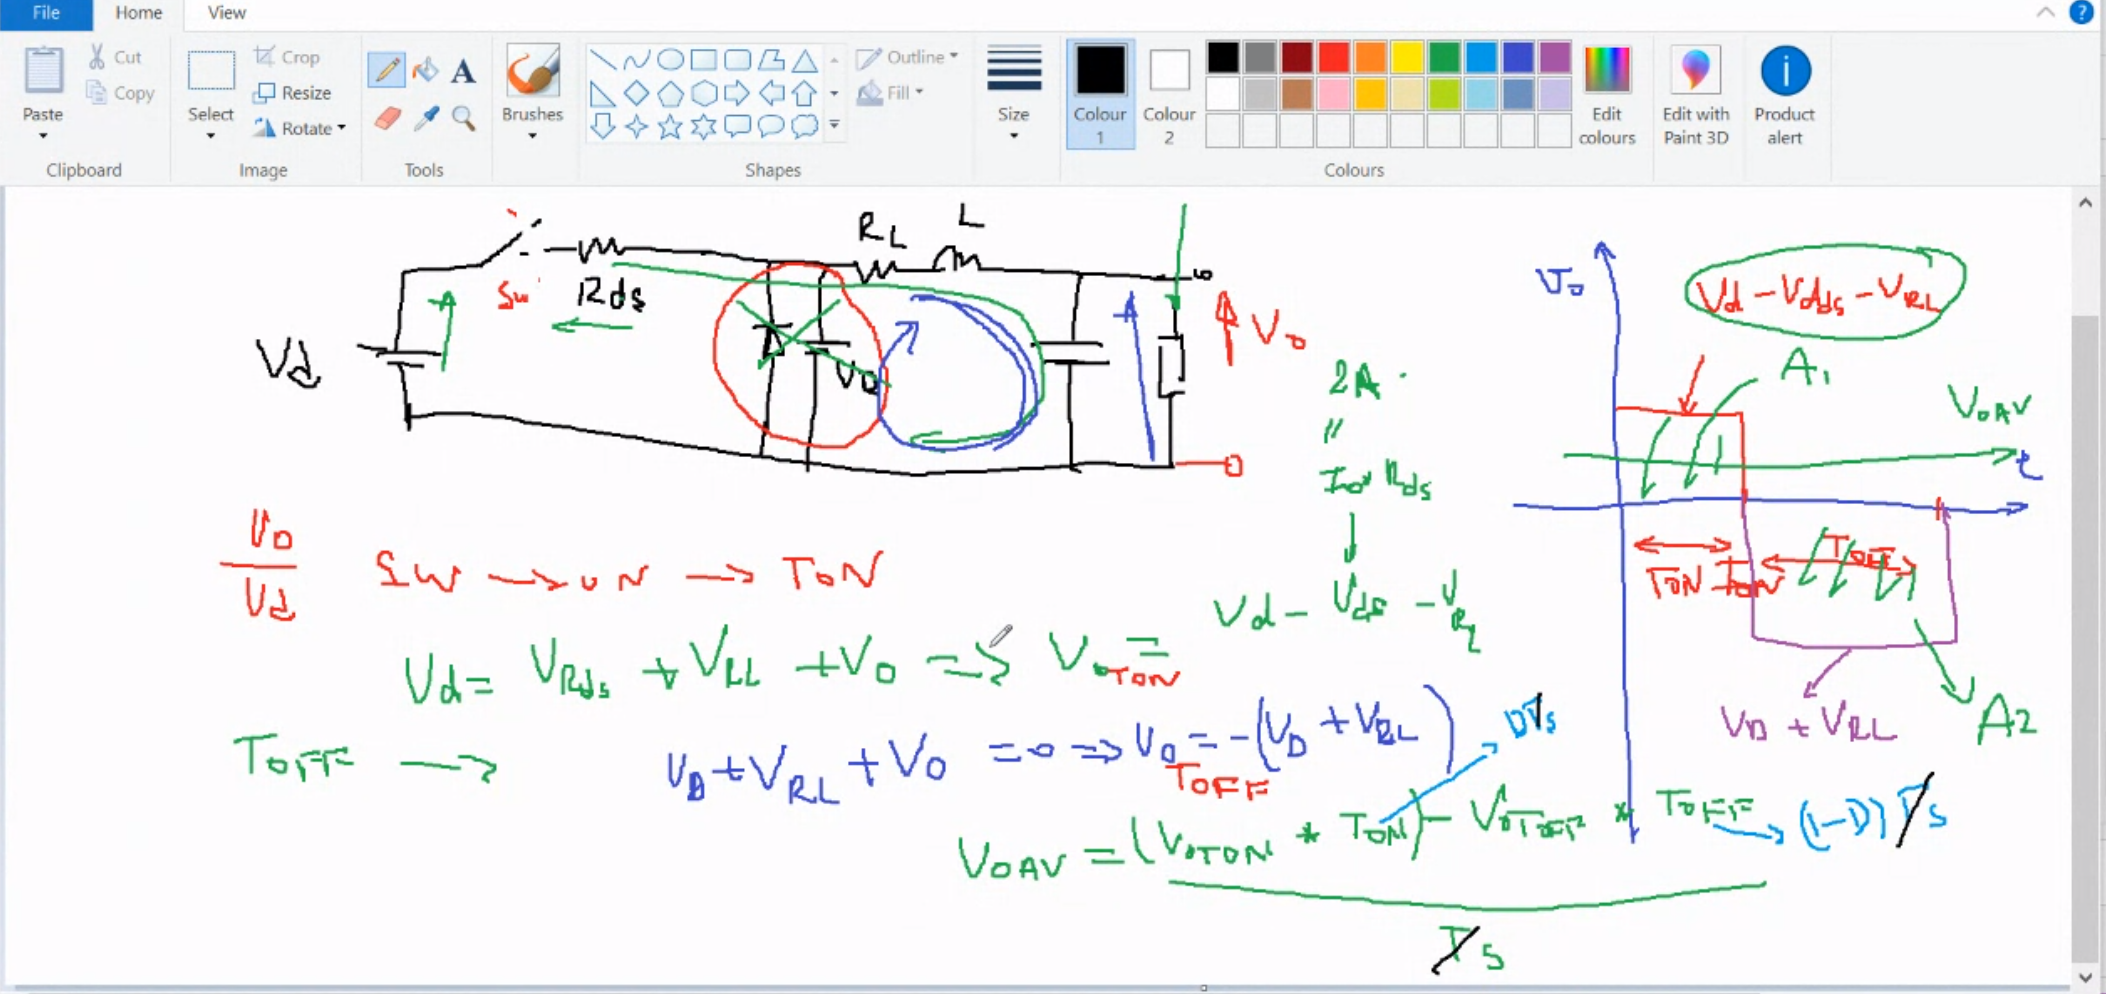 File Home View
Paste Cut Copy Clipboard
Select Crop Resize Rotate Image
A Tools
Brushes
Shapes
Outline Fill
Size
Colour 1 Colour 2 Edit colours Colours
Edit with Paint 3D
Product alert
RL L
Sw Rds
Vd
VD
Vo
Vo
Vd - Vds - VRL
A1
VOAV
t
2A
"
Io * Rds
TON TON TOFF
Vo
Vd
SW → ON → TON
Vd - Vds - VRL
Vd = VRds + VRL + VO => Vo TON =
VD + VRL
A2
TOFF → VD + VRL + VO = 0 => VO TOFF = -(VD + VRL)
DTs
VOAV = (VoTON * TON) - VOTOFF * TOFF → (1-D) Ts
Ts